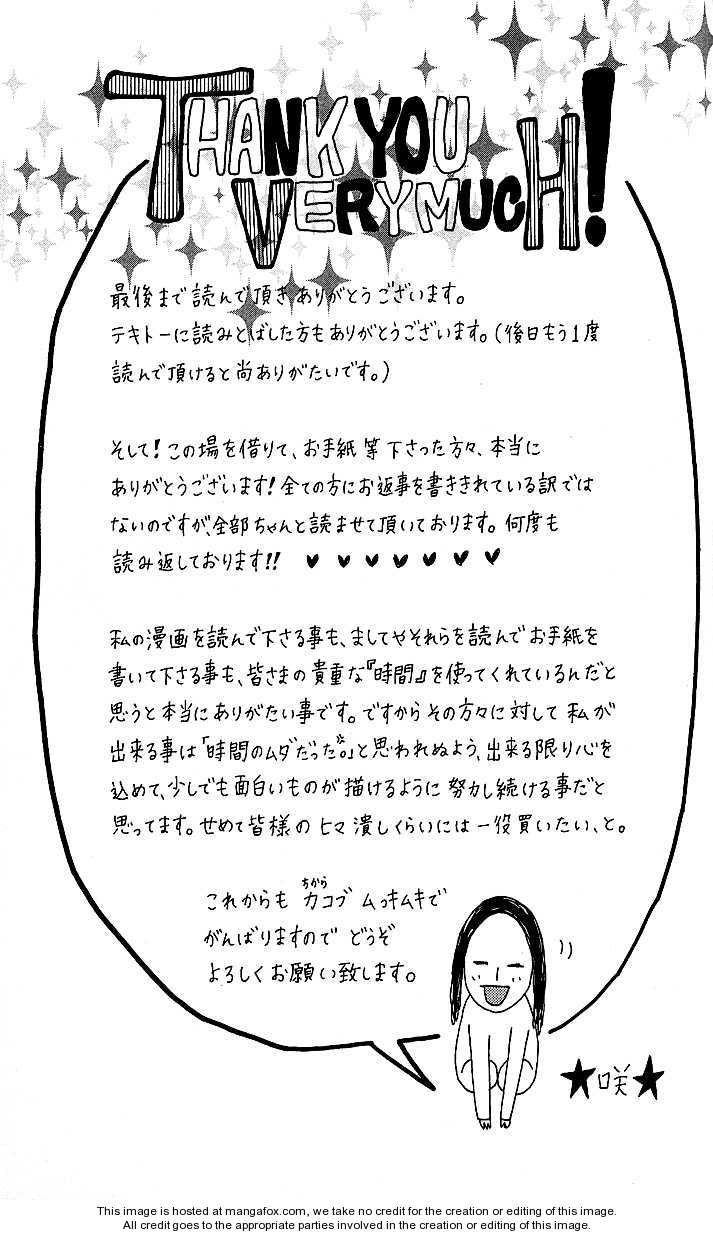 THANK YOU
VERY MUCH!
最後まで読んで頂きありがとうございます。
テキトーに読みとばした方もありがとうございます。(後日もう1度
読んで頂けると尚ありがたいです。)
そして!この場を借りて、お手紙等下さった方々、本当に
ありがとうございます!全ての方にお返事を書ききれている訳では
ないのですが、全部ちゃんと読ませて頂いております。何度も
読み返しております!! ♥ ♥ ♥ ♥ ♥ ♥ ♥
私の漫画を読んで下さる事も、ましてやそれらを読んでお手紙を
書いて下さる事も、皆さまの貴重な『時間』を使ってくれているんだと
思うと本当にありがたい事です。ですからその方々に対して私が
出来る事は「時間のムダだった。」と思われぬよう、出来る限り心を
込めて、少しでも面白いものが描けるように努力し続ける事だと
思ってます。せめて皆様のヒマ潰しくらいには一役買いたい、と。
ちから
これからも 力コブ ムッキムキで
がんばりますので どうぞ
よろしくお願い致します。
★咲★
This image is hosted at mangafox.com, we take no credit for the creation or editing of this image.
All credit goes to the appropriate parties involved in the creation or editing of this image.